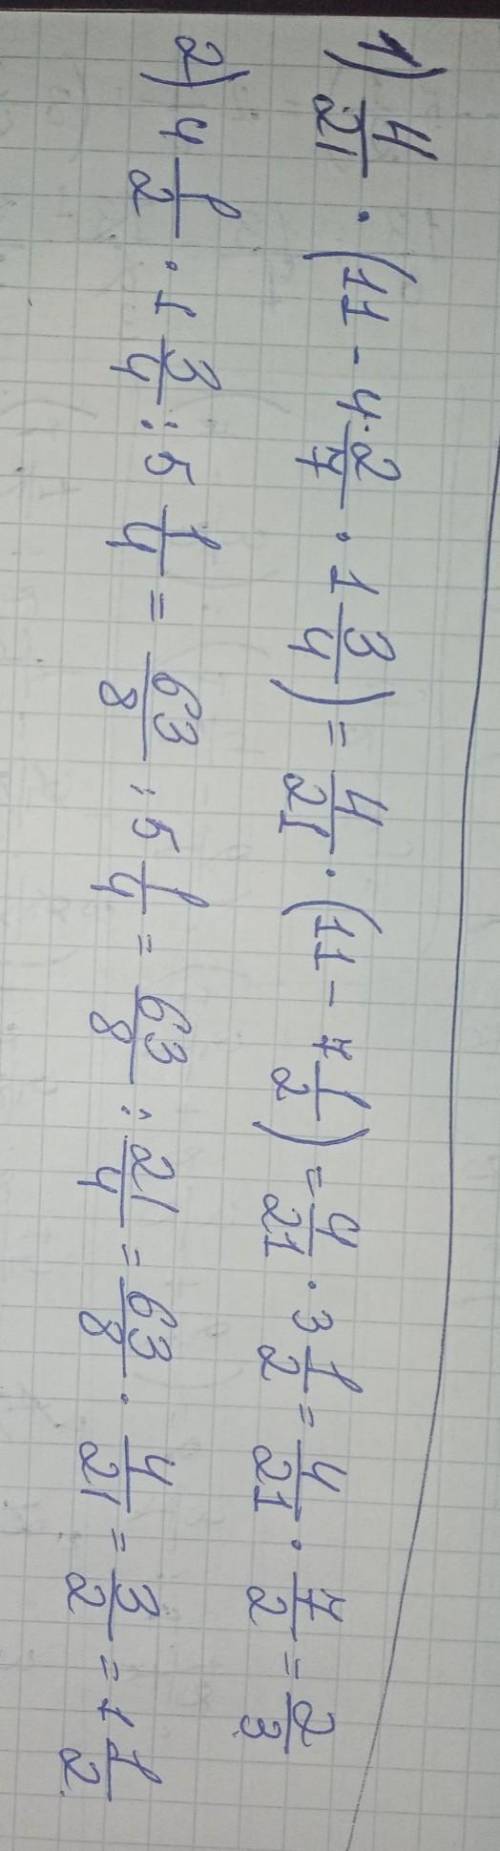 1) 4/21 · (11 - 4·2/7 · 1 3/4) = 4/21 · (11 - 7 1/2) = 4/21 · 3 1/2 = 4/21 · 7/2 = 2/3
2) 4 1/2 · 1 3/4 : 5 1/4 = 63/8 : 5 1/4 = 63/8 : 21/4 = 63/8 · 4/21 = 3/2 = 1 1/2